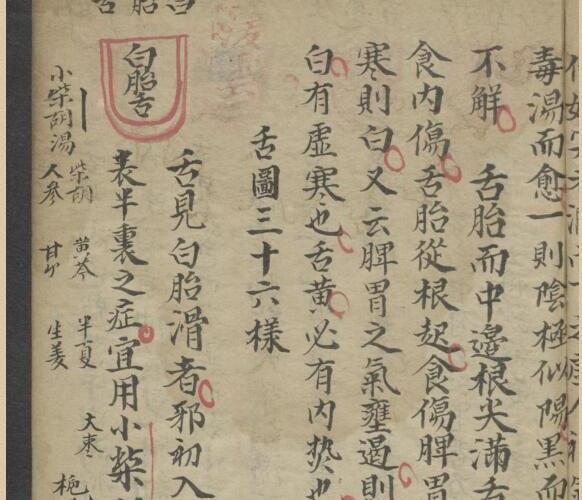 毒湯而愈一則陰極似陽黑而
不解 舌胎而中邊根尖滿舌
食內傷舌胎從根起食傷脾胃
寒則白又云脾胃之氣壅遏則
白有虛寒也舌黃必有內㷫也
舌圖三十六樣
白胎舌
舌見白胎滑者邪初入
表半裏之症宜用小柴
小柴胡湯
柴胡 黄芩 半夏 大枣
人参 甘 生姜